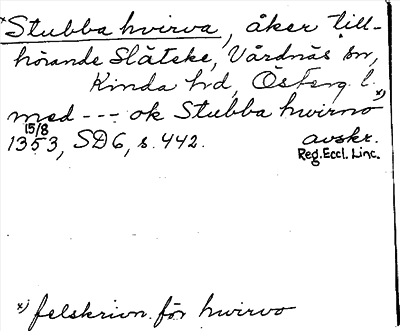 *Stubba hvirva, åker till-
hörande Släteke, Vårdnäs sn,
Kinda hd, Österg. l.
med --- ok Stubba hwirno x)
15/8
1353, SD6, s. 442. avskr.
Reg. Eccl. Linc.
x) felskrivn. för hwirvo